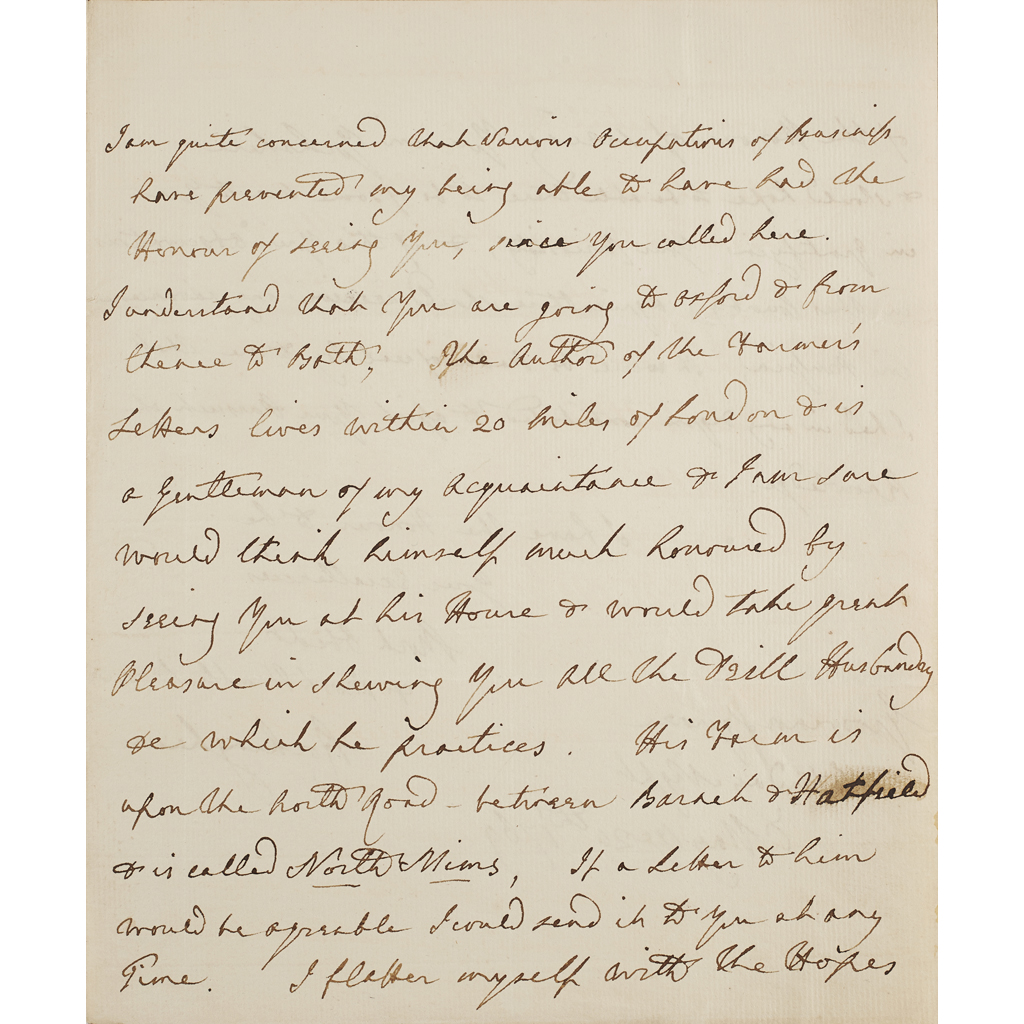 I am quite concerned that Various Occupations of Business
have prevented my being able to have had the
Honour of seeing You, since You called here.
I understand that You are going to oxford & from
thence to Bath; The Author of the Farmer's
Letters lives within 20 Miles of London & is
a Gentleman of my Acquaintance & I am sure
would think himself much honoured by
seeing You at his House & would take great
Pleasure in shewing You all the Drill Husbandry
&c which he practices. His Farm is
upon the North Road - between Barnet & Hatfield
& is called North Mims, If a Letter to him
would be agreable I could send it to You at any
Time. I flatter myself with the Hopes